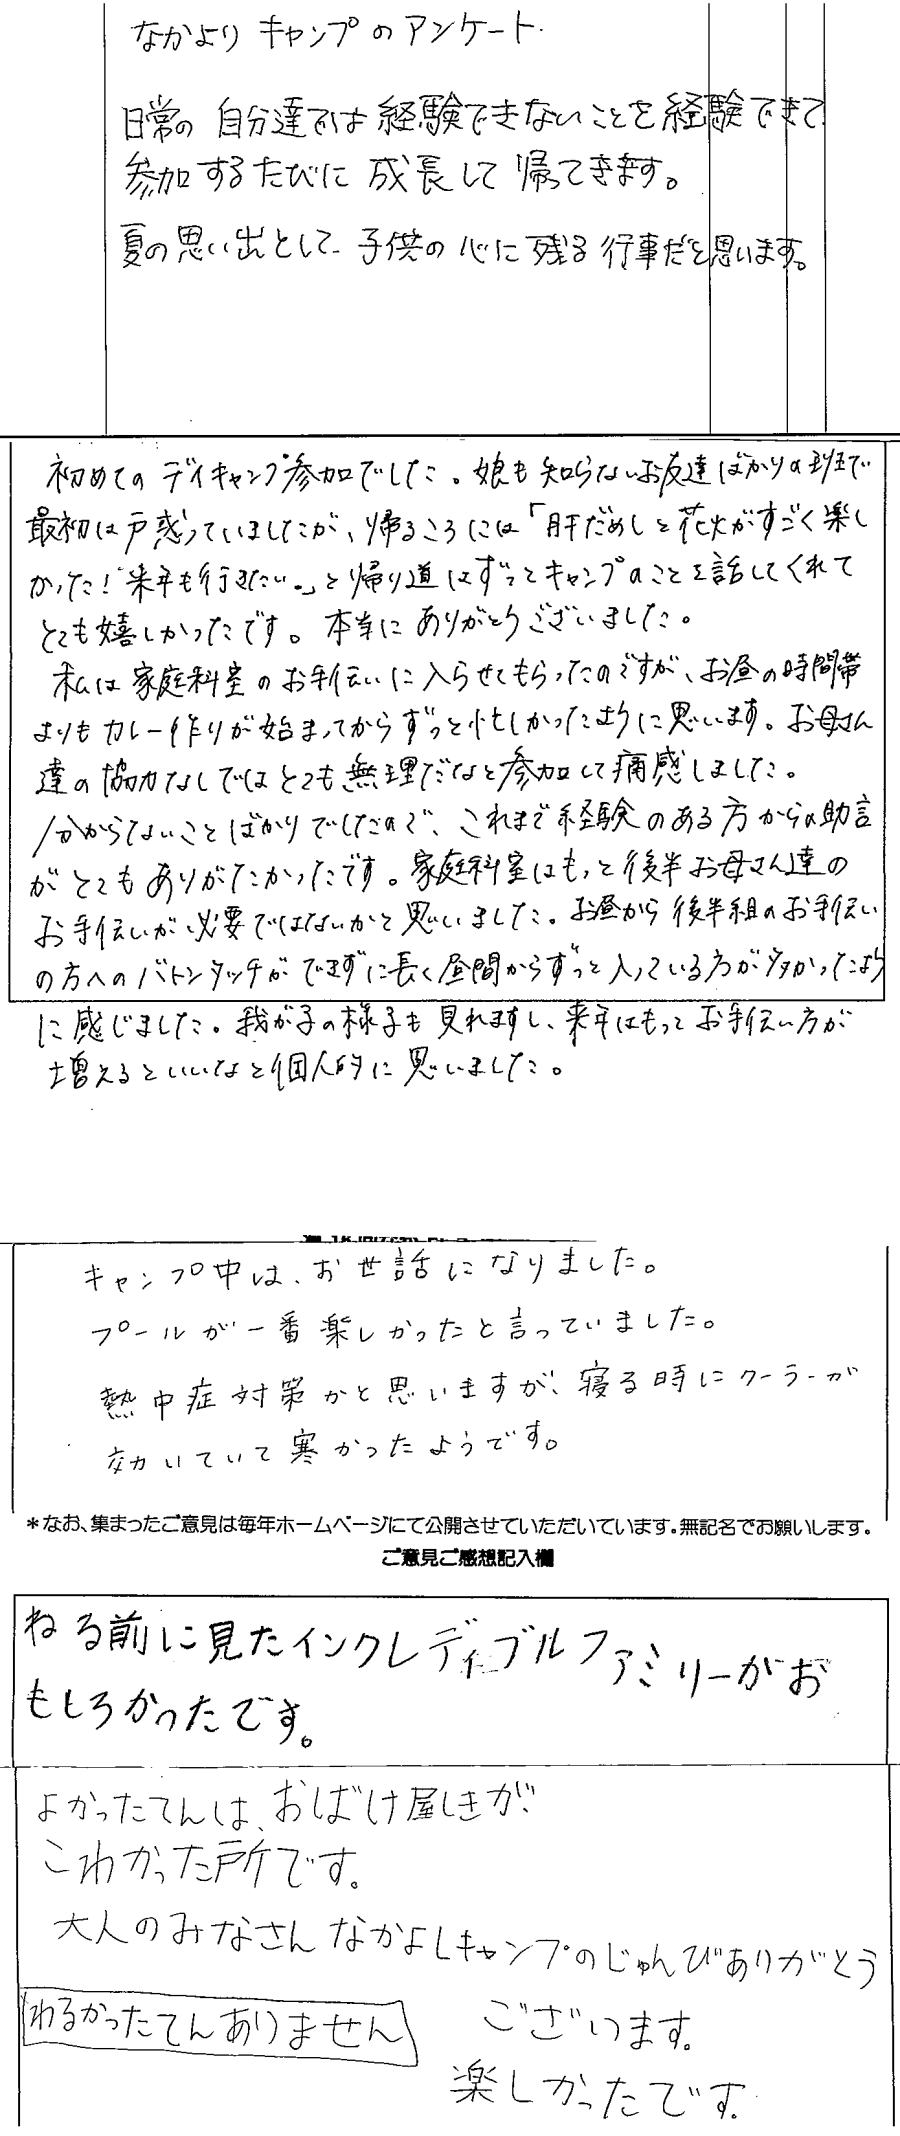 なかよりキャンプのアンケート
日常の自分達では経験できないことを経験できて
参加するたびに成長して帰ってきます。
夏の思い出として子供の心に残る行事だと思います。
初めてのデイキャンプ参加でした。娘も知らないお友達ばかりの班で
最初は戸惑っていましたが、帰るころには「肝だめしと花火がすごく楽し
かった!来年も行きたい。」と帰り道はずっとキャンプのことを話してくれて
とても嬉しかったです。本当にありがとうございました。
私は家庭科室のお手伝いに入らせてもらったのですが、お昼の時間帯
よりもカレー作りが始まってからずっと忙しかったように思います。お母さん
達の協力なしではとても無理だなと参加して痛感しました。
分からないことばかりでしたので、これまで経験のある方からの助言
がとてもありがたかったです。家庭科室はもっと後半お母さん達の
お手伝いが必要ではないかと思いました。お昼から後半組のお手伝い
の方へのバトンタッチができずに長く昼間からずっと入っている方が多かったよう
に感じました。我が子の様子も見れますし、来年はもっとお手伝い方が
増えるといいなと個人的に思いました。
キャンプ中は、お世話になりました。
プールが一番楽しかったと言っていました。
熱中症対策かと思いますが、寝る時にクーラーが
効いていて寒かったようです。
*なお、集まったご意見は毎年ホームページにて公開させていただいています。無記名でお願いします。
ご意見ご感想記入欄
ねる前に見たインクレディブルファミリーがお
もしろかったです。
よかったてんは、おばけ屋しきが
こわかった所です。
大人のみなさんなかよしキャンプのじゅんびありがとう
ございます。
わるかったてんありません
楽しかったです。